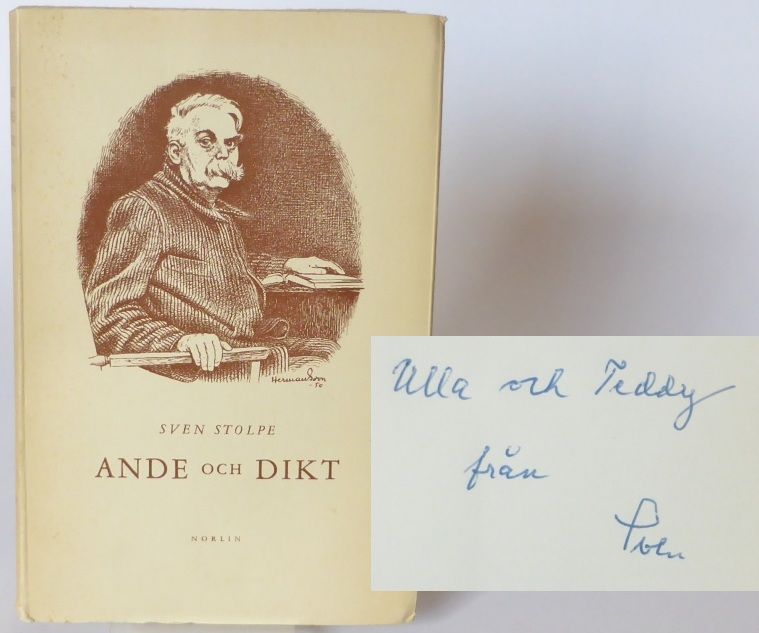 Hermansson
-50
SVEN STOLPE
ANDE OCH DIKT
NORLIN
Ulla och Teddy
från
Sven